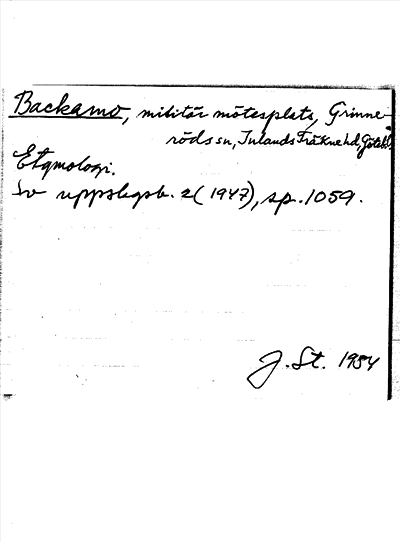 Backamo, militär mötesplats, Grinne-
röds sn, Inlands Fräkne hd, Götebl.
Etymologi.
Sv uppslagsb. 2 (1947), sp. 1059.
J. St. 1954